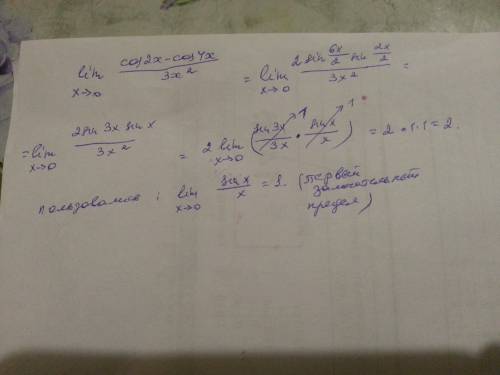 lim x→0 (cos2x - cos4x)/(3x²) = lim x→0 (2 sin 6x/2 sin 2x/2)/(3x²) =
= lim x→0 (2 sin 3x sin x)/(3x²) = 2 lim x→0 (sin 3x/3x · sin x/x) = 2·1·1 = 2.
пользовались : lim x→0 sin x/x = 1. (первый
замечательный
предел)